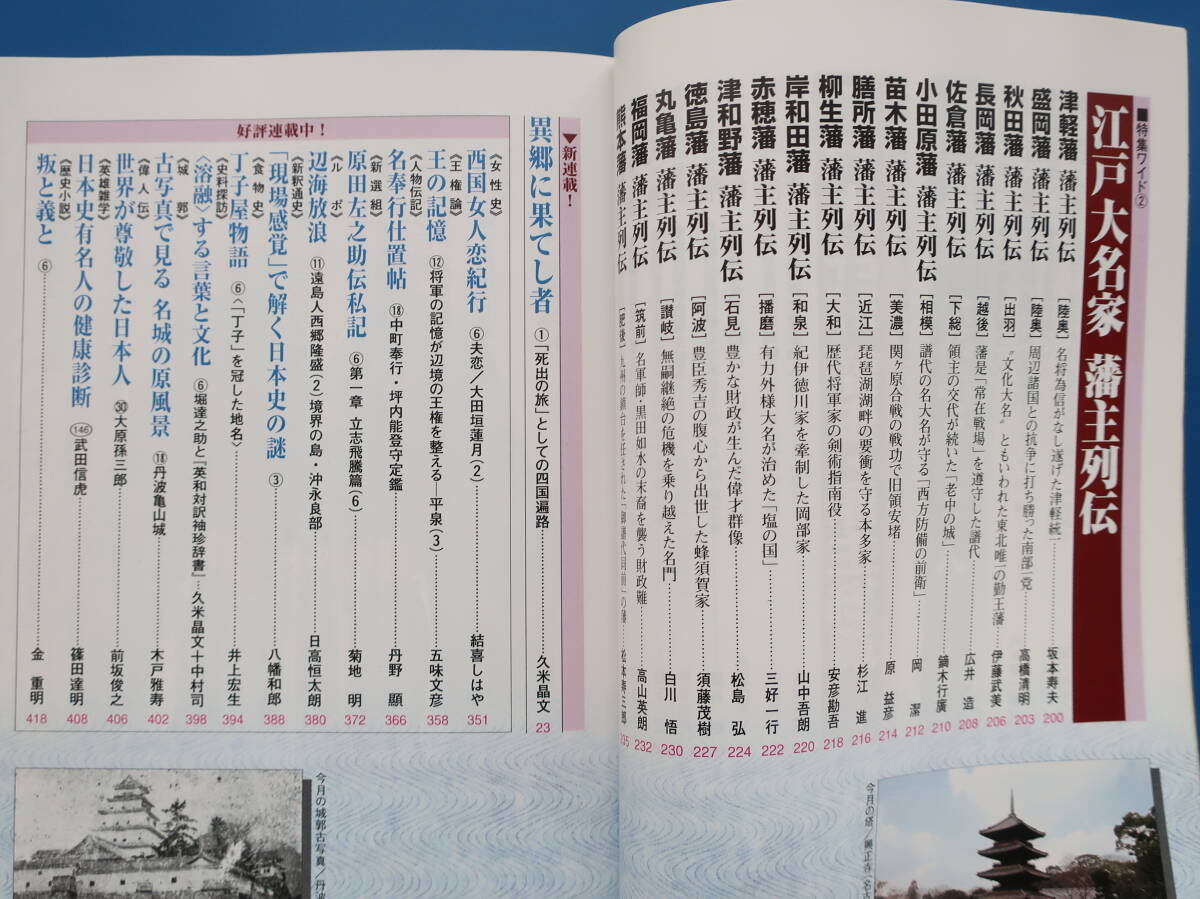 ■特集ワイド②
江戸大名家 藩主列伝
津軽藩 藩主列伝 [陸奥] 名将為信がなし遂げた津軽統一 坂本寿夫 200
盛岡藩 藩主列伝 [陸奥] 周辺諸国との抗争に打ち勝った南部一党 高橋清明 203
秋田藩 藩主列伝 [出羽] “文化大名”ともいわれた東北唯一の勤王藩 伊藤武美 206
長岡藩 藩主列伝 [越後] 藩是「常在戦場」を遵守した譜代 広井 造 208
佐倉藩 藩主列伝 [下総] 領主の交代が続いた「老中の城」 鏑木行廣 210
小田原藩 藩主列伝 [相模] 譜代の名大名が守る「西方防備の前衛」 岡 潔 212
苗木藩 藩主列伝 [美濃] 関ヶ原合戦の戦功で旧領安堵 原 益彦 214
膳所藩 藩主列伝 [近江] 琵琶湖湖畔の要衝を守る本多家 杉江 進 216
柳生藩 藩主列伝 [大和] 歴代将軍家の剣術指南役 安彦勘吾 218
岸和田藩 藩主列伝 [和泉] 紀伊徳川家を牽制した岡部家 山中吾朗 220
赤穂藩 藩主列伝 [播磨] 有力外様大名が治めた「塩の国」 三好一行 222
津和野藩 藩主列伝 [石見] 豊かな財政が生んだ偉才群像 松島 弘 224
徳島藩 藩主列伝 [阿波] 豊臣秀吉の腹心から出世した蜂須賀家 須藤茂樹 227
丸亀藩 藩主列伝 [讃岐] 無嗣継絶の危機を乗り越えた名門 白川 悟 230
福岡藩 藩主列伝 [筑前] 名軍師・黒田如水の末裔を襲う財政難 高山英朗 232
熊本藩 藩主列伝 [肥後] 九州の鎮台を任された「御譜代同前」の藩 松本寿三郎 235
今月の塔／興正寺（名古
▼新連載！
異郷に果てし者 ①「死出の旅」としての四国遍路 久米晶文 23
好評連載中！
《女性史》 西国女人恋紀行 ⑥夫恋／大田垣蓮月（2） 結喜しはや 351
《王権論》 王の記憶 ⑫将軍の記憶が辺境の王権を整える―平泉（3） 五味文彦 358
《人物伝記》 名奉行仕置帖 ⑱中町奉行・坪内能登守定鑑 丹野 顯 366
《新選組》 原田左之助伝私記 ⑥第一章 立志飛騰篇（6） 菊地 明 372
《ルポ》 辺海放浪 ⑪遠島人西郷隆盛（2）境界の島・沖永良部 日高恒太朗 380
《新釈通史》 「現場感覚」で解く日本史の謎 ③ 八幡和郎 388
《食物史》 丁子屋物語 ⑥〈「丁子」を冠した地名〉 井上宏生 394
《史料探訪》 〈溶融〉する言葉と文化 ⑥堀達之助と『英和対訳袖珍辞書』 久米晶文＋中村司 398
《城郭》 古写真で見る 名城の原風景 ⑱丹波亀山城 木戸雅寿 402
《偉人伝》 世界が尊敬した日本人 ㉚大原孫三郎 前坂俊之 406
《英雄雑学》 日本史有名人の健康診断 (146)武田信虎 篠田達明 408
《歴史小説》 叛と義と ⑥ 金 重明 418
今月の城郭古写真／丹波